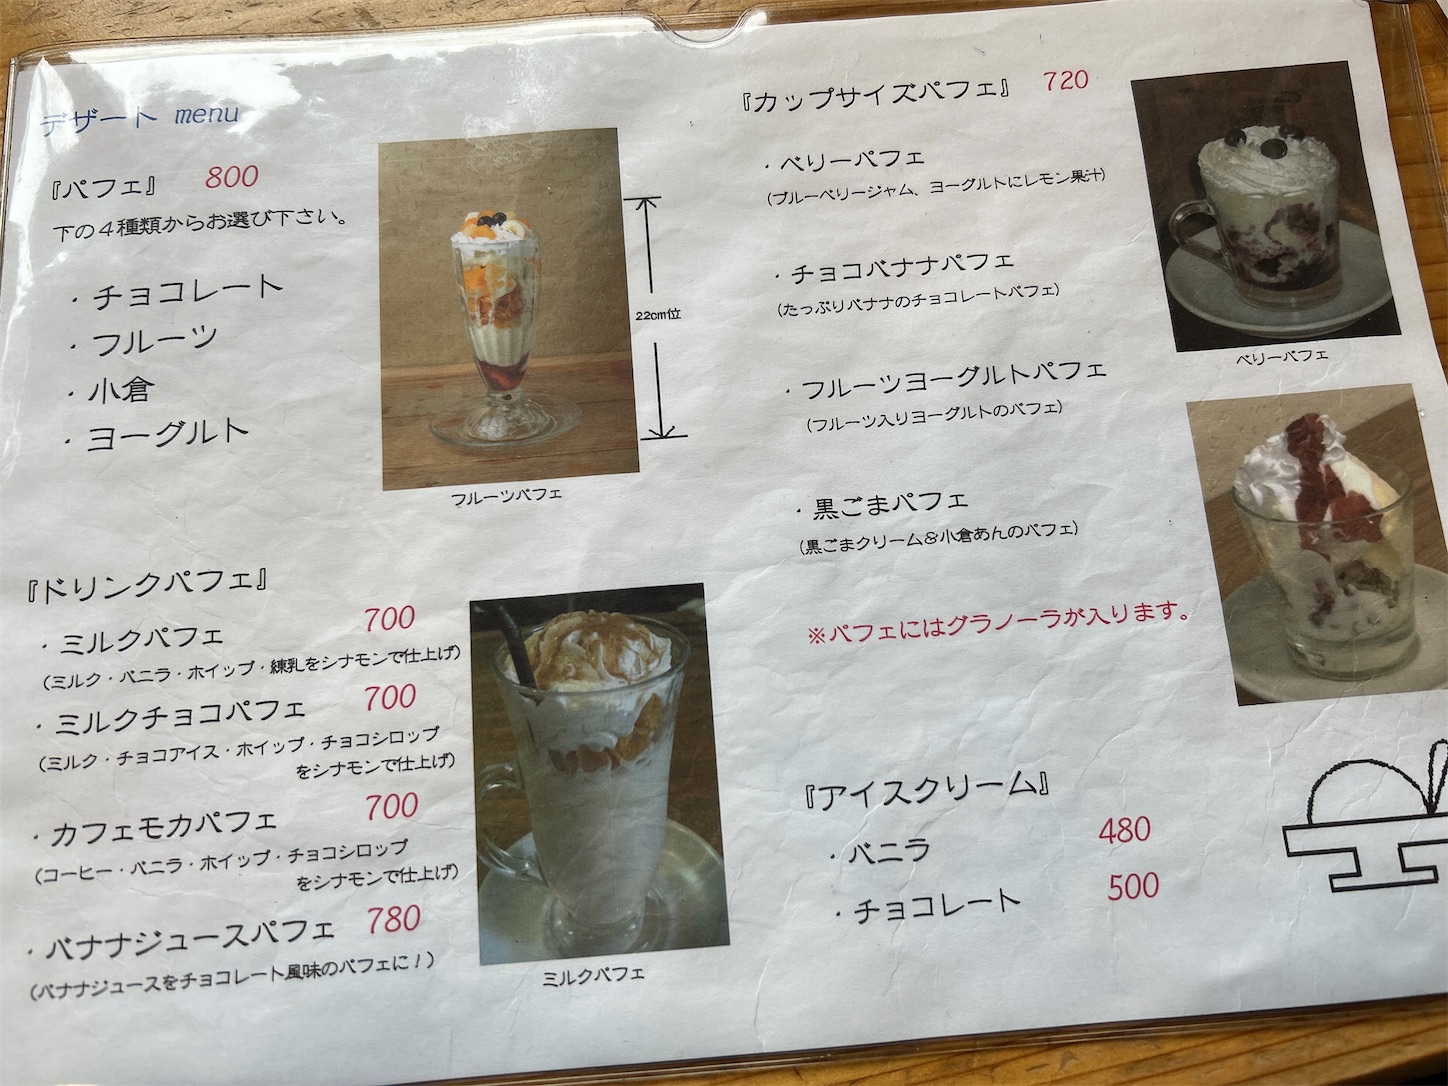 デザート menu
『パフェ』 800
下の４種類からお選び下さい。
・チョコレート
・フルーツ
・小倉
・ヨーグルト
22cm位
フルーツパフェ
『ドリンクパフェ』
・ミルクパフェ 700
(ミルク・バニラ・ホイップ・練乳をシナモンで仕上げ)
・ミルクチョコパフェ 700
(ミルク・チョコアイス・ホイップ・チョコシロップ
をシナモンで仕上げ)
・カフェモカパフェ 700
(コーヒー・バニラ・ホイップ・チョコシロップ
をシナモンで仕上げ)
・バナナジュースパフェ 780
(バナナジュースをチョコレート風味のパフェに！)
ミルクパフェ
『カップサイズパフェ』 720
・ベリーパフェ
(ブルーベリージャム、ヨーグルトにレモン果汁)
・チョコバナナパフェ
(たっぷりバナナのチョコレートパフェ)
・フルーツヨーグルトパフェ
(フルーツ入りヨーグルトのパフェ)
・黒ごまパフェ
(黒ごまクリーム＆小倉あんのパフェ)
※パフェにはグラノーラが入ります。
ベリーパフェ
『アイスクリーム』
・バニラ 480
・チョコレート 500